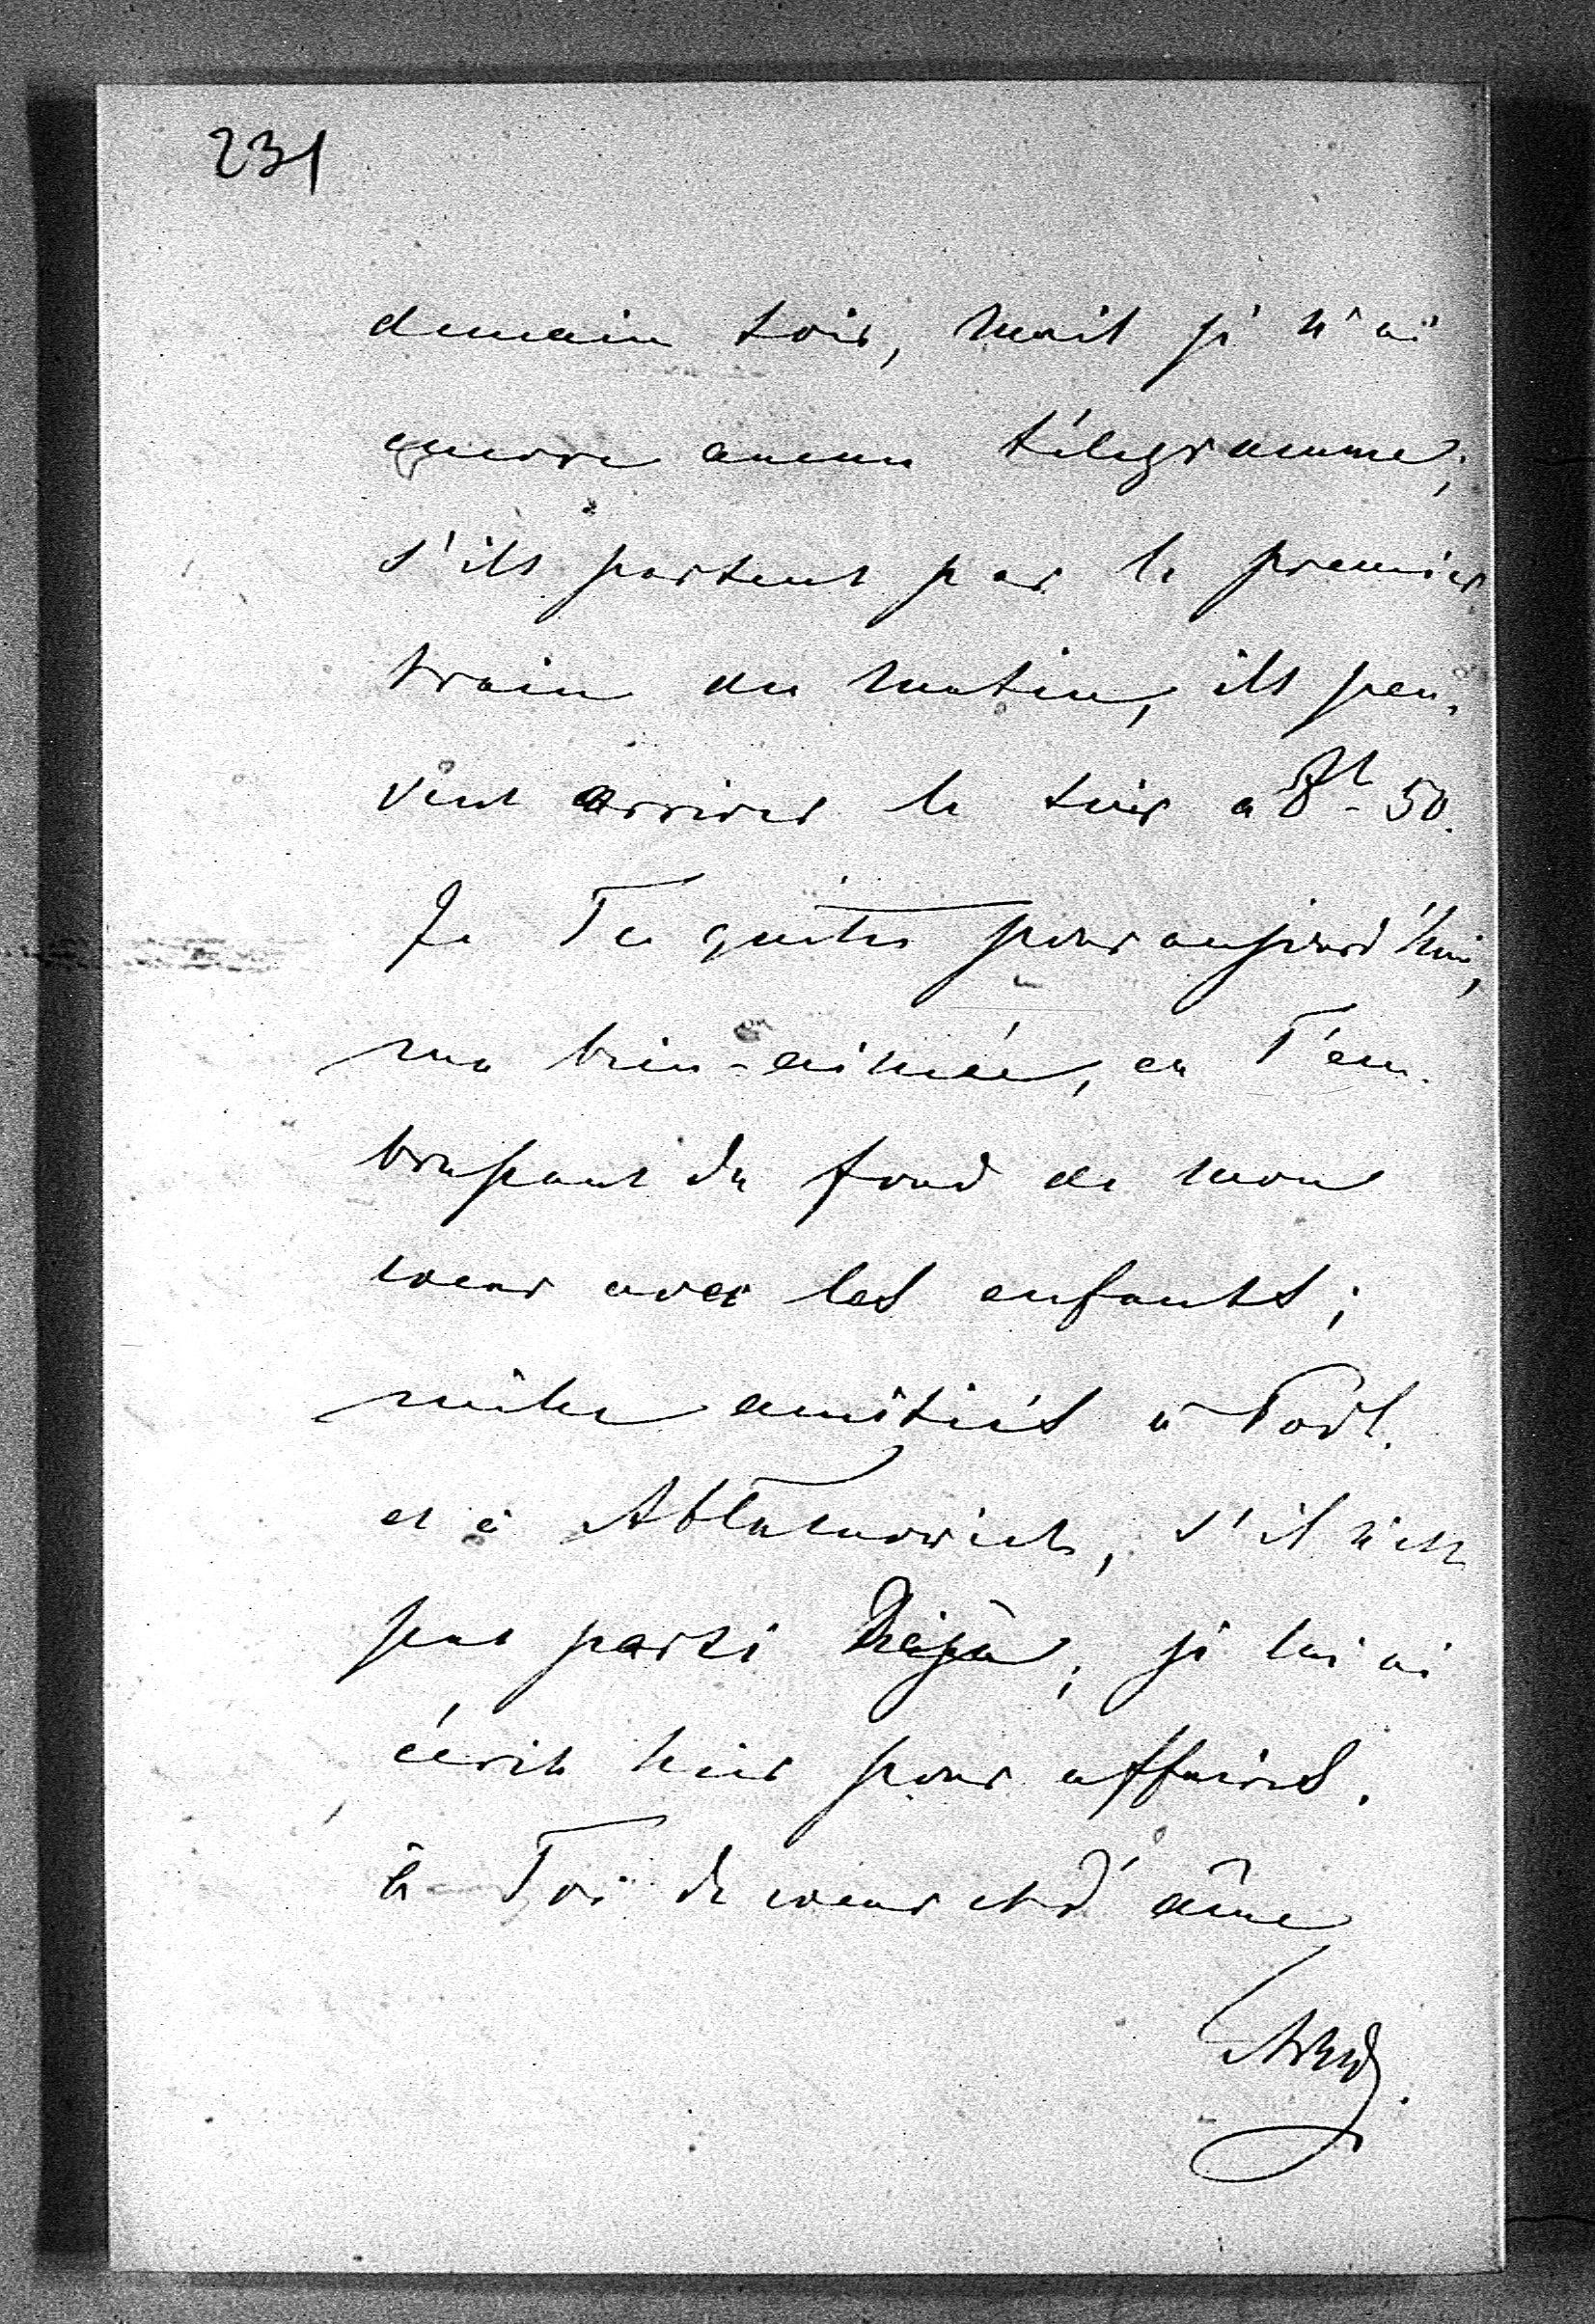 231
demain soir, mais je n'ai
encore aucun télegramme;
s'ils partent par le premier
train du matin, ils peu-
vent arriver le soir a 8h - 50.
Je Te quitte pour aujourd'hui,
ma bien-aimée, en T'em-
brassant du fond de mon
coeur avec les enfants;
mille amitiés à Podl.
et à Ablamowicz, s'il n'est
pas parti déjà; je lui ai
écrit hier pour affaires.
à Toi de coeur et d'âme